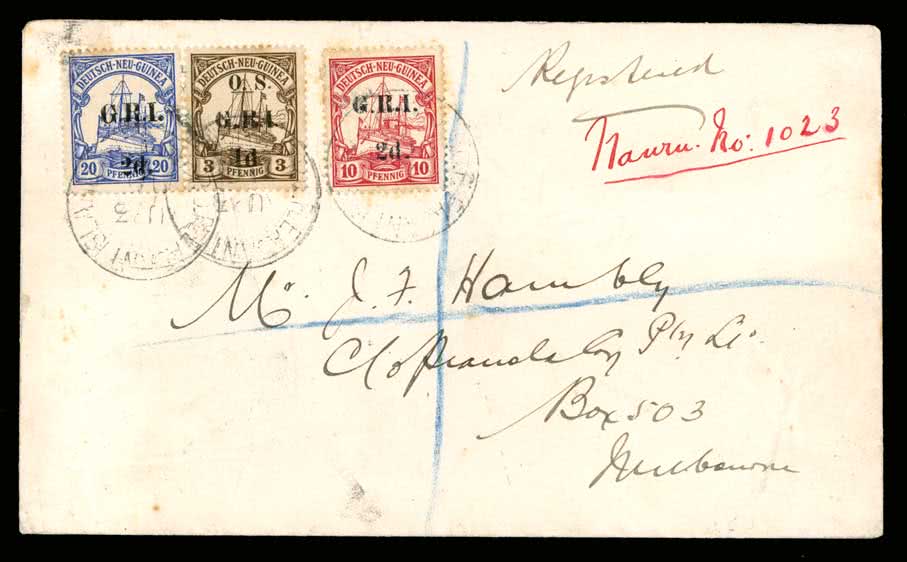 DEUTSCH-NEU-GUINEA
G.R.I.
2d.
20 PFENNIG 20
DEUTSCH-NEU-GUINEA
O.S.
G.R.I.
1d
3 PFENNIG 3
DEUTSCH-NEU-GUINEA
G.R.I.
2d.
10 PFENNIG 10
Registered
Nauru. No: 1023
Mr. J. F. Hambly
C/o Pty
Box 503
Melbourne